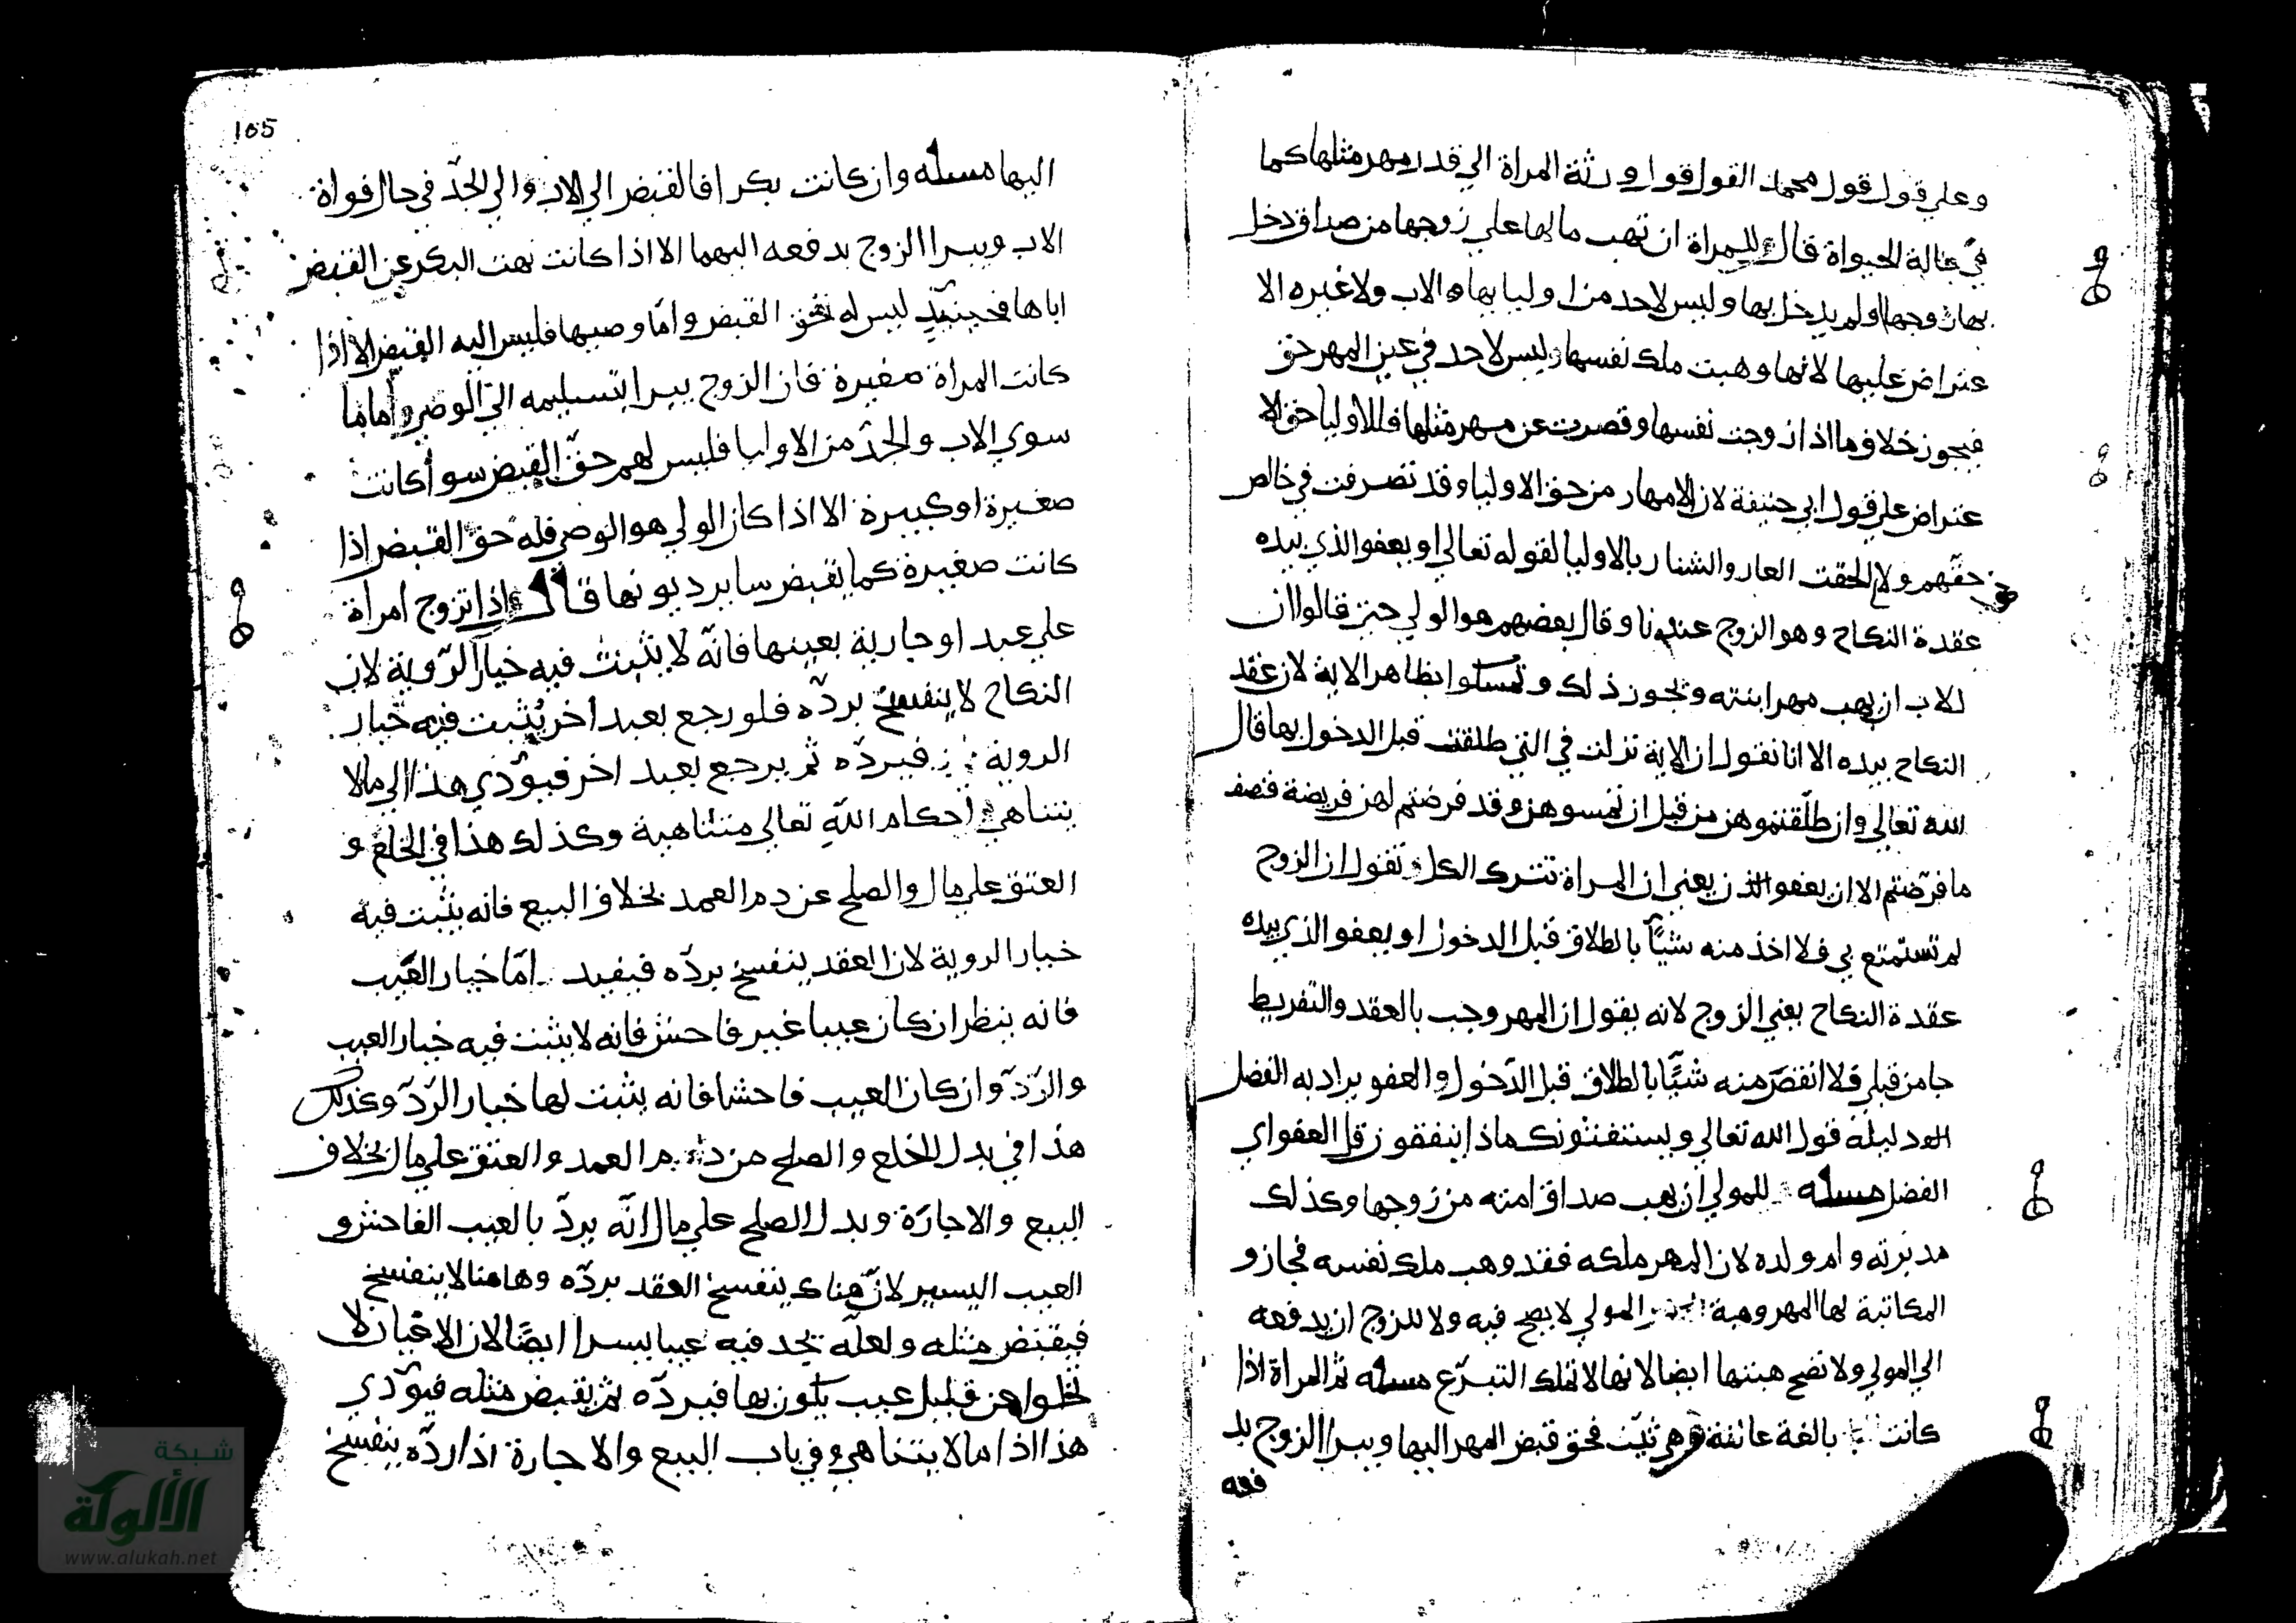 وعلى قول قول محمد القول قول ورثة المراة الي قدر مهر مثلها كما
في حالة الحيواة قال للمراة ان تهب مالها علي زوجها من صداق دخل
بها زوجها او لم يدخل بها وليس لاحد من اوليايها الاب ولا غيره الا
عتراض عليها لانها وهبت ملك نفسها وليس لاحد في عين المهر حق
فيجوز خلاف ما اذا زوجت نفسها وقصرت عن مهر مثلها فللاوليا حق الا
عتراض علي قول ابي حنيفة لان الامهار من حق الاوليا وقد تصرفت في خالص
حقهم ولا الحقت العار والشنار بالاوليا لقوله تعالي او يعفوا الذي بيده
عقدة النكاح وهو الزوج عندنا وقال بعضهم هو الولي حتي قالوا ان
للاب ان يهب مهر ابنته ويجوز ذلك وتمسكوا بظاهر الاية لان عقد
النكاح بيده الا انا نقول ان الاية نزلت في التي طلقت قبل الدخول بها قال
الله تعالي وان طلقتموهن من قبل ان تمسوهن وقد فرضتم لهن فريضة فنصف
ما فرضتم الا ان يعفو يعني ان المراة تترك الكل وتقول ان الزوج
لم تستمتع بي فلا اخذ منه شيأ بالطلاق قبل الدخول او يعفو الذي بيده
عقدة النكاح يعني الزوج لانه يقول ان المهر وجب بالعقد والتفريط
جا من قبلي فلا انقص منه شيأ بالطلاق قبل الدخول والعفو يراد به الفضل
دليله قول الله تعالي ويستفتونك ماذا ينفقون قل العفو اي
الفضل مسله للمولي ان يهب صداق امته من زوجها وكذلك
مدبرته وام ولده لان المهر ملكه فقد وهب ملك نفسه فجاز و
المكاتبة لها المهر وهبة المولي لا يصح فيه ولا للزوج ان يدفعه
الي المولي ولا تصح هبتها ايضا لانها لا تملك التبرع مسله ثم المراة اذا
كانت بالغة عاقلة وهي ثيب فحق قبض المهر اليها ويبرا الزوج بد
فعه
105
اليها مسله وان كانت بكرا فالقبض الي الاب والي الجد في حال فواة
الاب ويبرا الزوج بدفعه اليهما الا اذا كانت نهت البكر عن القبض
اباها فحينئذ ليس له حق القبض واما وصيها فليس اليه القبض الا اذا
كانت المراة صغيرة فان الزوج يبرا بتسليمه الي الوصي واما ما
سوي الاب والجد من الاوليا فليس لهم حق القبض سوا كانت
صغيرة او كبيرة الا اذا كان الولي هو الوصي فله حق القبض اذا
كانت صغيرة كما يقبض ساير ديونها قال اذا تزوج امراة
علي عبد او جارية بعينها فانه لا يثبت فيه خيار الروية لان
النكاح لا ينفسخ برده فلو رجع بعبد أخر يثبت فيه خيار
الروية فيرده ثم يرجع بعبد اخر فيؤدي هذا الي مالا
يتناهي احكام الله تعالي متناهية وكذلك هذا في الخلع و
العتق علي مال والصلح عن دم العمد بخلاف البيع فانه يثبت فيه
خيار الروية لان العقد ينفسخ برده فيفيد امّا خيار العيب
فانه ينظر ان كان عيبا غير فاحش فانه لا يثبت فيه خيار العيب
والرد وان كان العيب فاحشا فانه يثبت لها خيار الرد وكذلك
هذا في بدل الخلع والصلح من دم العمد والعتق علي مال بخلاف
البيع والاجارة وبدل الصلح علي مال انه يرد بالعيب الفاحش و
العيب اليسير لان هناك ينفسخ العقد برده وهاهنا لا ينفسخ
فيقبض مثله ولعله يجد فيه عيبا يسرا ايضًا لان الاعيان لا
تخلوا عن قليل عيب يكون بها فيرده ثم يقبض مثله فيؤدي
هذا اذا مالا يتناهي وفي باب البيع والاجارة اذا رده ينفسخ
شبكة
الألوكة
www.alukah.net